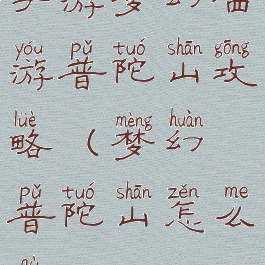 yóu pǔ tuó shān gōng
游普陀山攻
lüè mèng huàn
略（梦幻
pǔ tuó shān zěn me
普陀山怎么